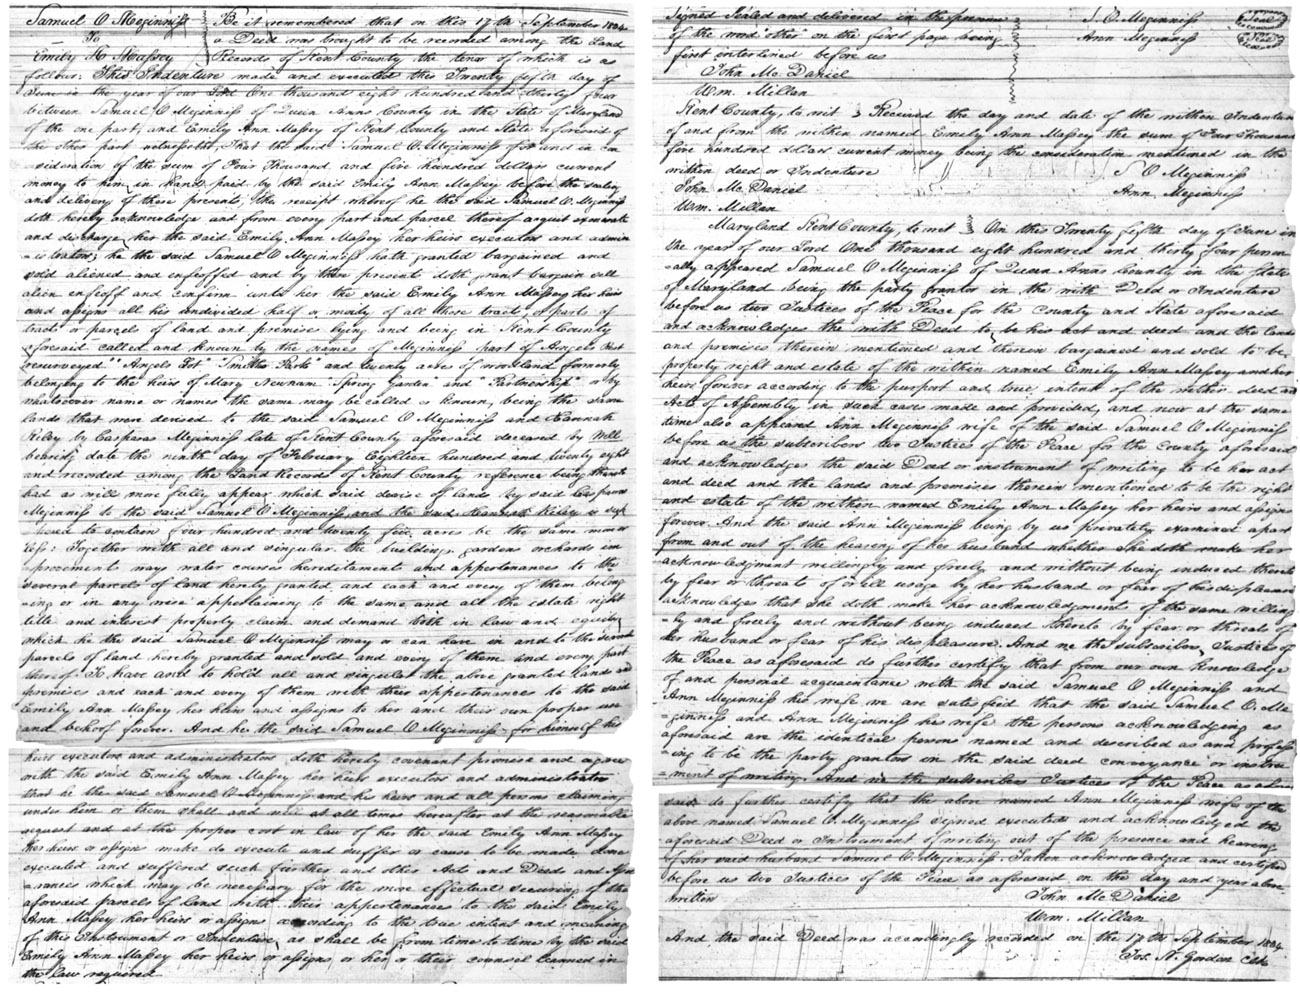 Samuel O Meginniss } Be it remembered that on this 17th September 1834
To } a Deed was brought to be recorded among the Land
Emily A Massey } Records of Kent County the tenor of which is as
follows: This Indenture made and executed this Twenty fifth day of
June in the year of our Lord One thousand eight hundred and thirty four
between Samuel O Meginniss of Queen Anns County in the State of Maryland
of the one part, and Emily Ann Massey of Kent County and State aforesaid of
the other part witnesseth, That the said Samuel O Meginniss for and in con
-sideration of the sum of Four thousand and five hundred dollars current
money to him in hand paid by the said Emily Ann Massey before the sealing
and delivery of these presents, the receipt whereof he the said Samuel O Meginniss
doth hereby acknowledge and from every part and parcel thereof acquit exonerate
and discharge her the said Emily Ann Massey her heirs executors and admin
-istrators, he the said Samuel O Meginniss hath granted bargained and
sold aliened and enfeoffed and by these present doth grant bargain sell
alien enfeoff and confirm unto her the said Emily Ann Massey her heirs
and assigns all his undivided half or moity of all those tracts, or parts of
tract or parcels of land and premises lying and being in Kent County
aforesaid called and known by the names of Meginniss part of Angels Rest
resurveyed" "Angels Lot" "Smiths Park" and twenty acres of woodland formerly
belonging to the heirs of Mary Newnam "Spring Garden" and "Partnership" or by
whatsoever name or names the same may be called or known, being the same
lands that were devised to the said Samuel O Meginniss and Hannah
Riley by Casparus Meginniss late of Kent County aforesaid deceased by Will
bearing date the ninth day of February Eighteen hundred and twenty eight
and recorded among the Land Records of Kent County reference being thereto
had as will more fully appear which said devise of lands by said Casparus
Meginniss to the said Samuel O Meginniss and the said Hannah Riley is sup
-posed to contain four hundred and twenty five acres be the same more or
less: Together with all and singular the buildings gardens orchards im
-provement ways water courses hereditaments and appertenances to the
several parcels of land hereby granted and each and every of them belong
-ing or in any wise appertaining to the same and all the estate right
title and interest property claim and demand both in Law and equity
which he the said Samuel O Meginniss may or can have in and to the several
parcels of land hereby granted and sold and every of them and every part
thereof To have and to hold all and singular the above granted lands and
premises and each and every of them with their appertenances to the said
Emily Ann Massey her heirs and assigns to her and their own proper use
and behoof forever. And he the said Samuel O Meginniss for himself his
heirs executors and administrators doth hereby covenant promise and agree
with the said Emily Ann Massey her heirs executors and administrators
that he the said Samuel O Meginniss and his heirs and all persons claiming
under him or them shall and will at all times hereafter at the reasonable
request and at the proper cost in law of her the said Emily Ann Massey
her heirs or assigns make do execute and suffer or cause to be made, done
executed and suffered such further and other Act and Deeds and Assu
-rances which may be necessary for the more effectual securing of the
aforesaid parcels of land with their appertenances to the said Emily
Ann Massey her heirs or assigns according to the true intent and meaning
of this Instrument or Indenture, as shall be from time to time by the said
Emily Ann Massey her heirs or assigns or her or their counsel learned in
the Law required
Signed Sealed and delivered in the presence } S. O. Meginniss Seal
of the word "other" on the first page being } Ann Meginniss Seal
first interlined before us
John Mc. Daniel
Wm. Millan
Kent County, to wit } Received the day and date of the within Indenture
of and from the within named Emily Ann Massey the sum of Four thousand
five hundred dollars current money being the consideration mentioned in the
within deed or Indenture
S O Meginniss
John Mc Daniel
Ann Meginniss
Wm. Millan
Maryland Kent County, to wit } On this Twenty fifth day of June in
the year of our Lord One thousand eight hundred and thirty four person
-ally appeared Samuel O Meginniss of Queen Anns County in the State
of Maryland being the party grantor in the with Deed or Indenture
before us two Justices of the Peace for the County and State aforesaid
and acknowledges the with Deed to be his act and deed and the lands
and premises therein mentioned and therein bargained and sold to be
property right and estate of the within named Emily Ann Massey and her
heirs forever according to the purport and true intent of the within deed and
Acts of Assembly in such cases made and provided, and now at the same
time also appeared Ann Meginniss wife of the said Samuel O Meginniss
before us the subscribers two Justices of the Peace for the County aforesaid
and acknowledges the said Deed or instrument of writing to be her act
and deed and the lands and premises therein mentioned to be the right
and estate of the within named Emily Ann Massey her heirs and assigns
forever. And the said Ann Meginniss being by us privately examined apart
from and out of the hearing of her husband whether she doth make her
acknowledgment willingly and freely and without being induced thereto
by fear or threats of or ill usage by her husband or fear of his displeasure
acknowledges that she doth make her acknowledgment of the same willing
-ly and freely and without being induced thereto by fear or threats of
her husband or fear of his displeasure. And we the subscribers, Justices of
the Peace as aforesaid do further certify that from our own knowledge
of and personal acquaintance with the said Samuel O Meginniss and
Ann Meginniss his wife we are satisfied that the said Samuel O. Me
-ginniss and Ann Meginniss his wife the persons acknowledging as
aforesaid are the identical persons named and described as and profess
-ing to be the party grantors in the said deed conveyance or instru
-ment of writing. And we the subscribers Justices of the Peace as afore
said do further certify that the above named Ann Meginniss wife of the
above named Samuel O. Meginniss signed executed and acknowledged the
aforesaid Deed or Instrument of writing out of the presence and hearing
of her said husband Samuel O. Meginniss. Taken acknowledged and certified
before us two Justices of the Peace as aforesaid on the day and year above
written
John Mc Daniel
Wm. Millan
And the said Deed was accordingly recorded on the 17th September 1834
Jos. N. Gordon Clk